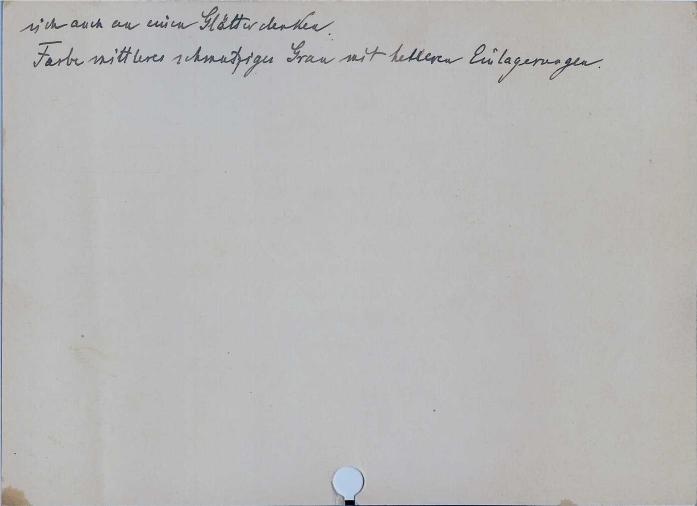 sich auch an einen Glätter denken.
Farbe mittleres schmutziges Grau mit helleren Einlagerungen.